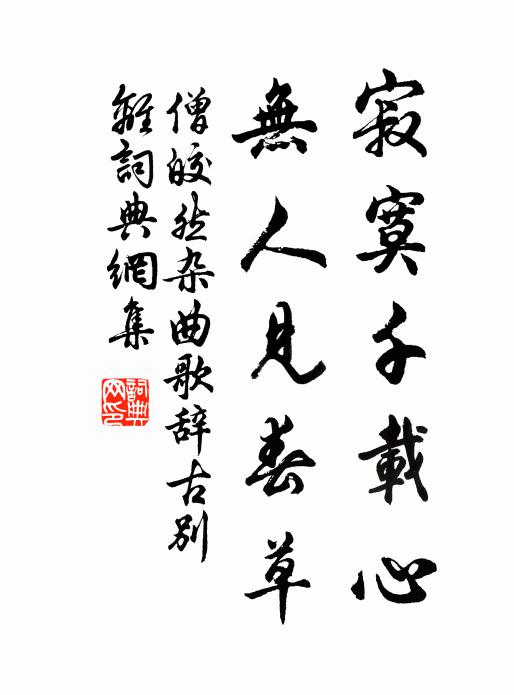 寂寞千載心
無人見春草
僧皎然杂曲歌辞古别
離詞典網集
詞典網印